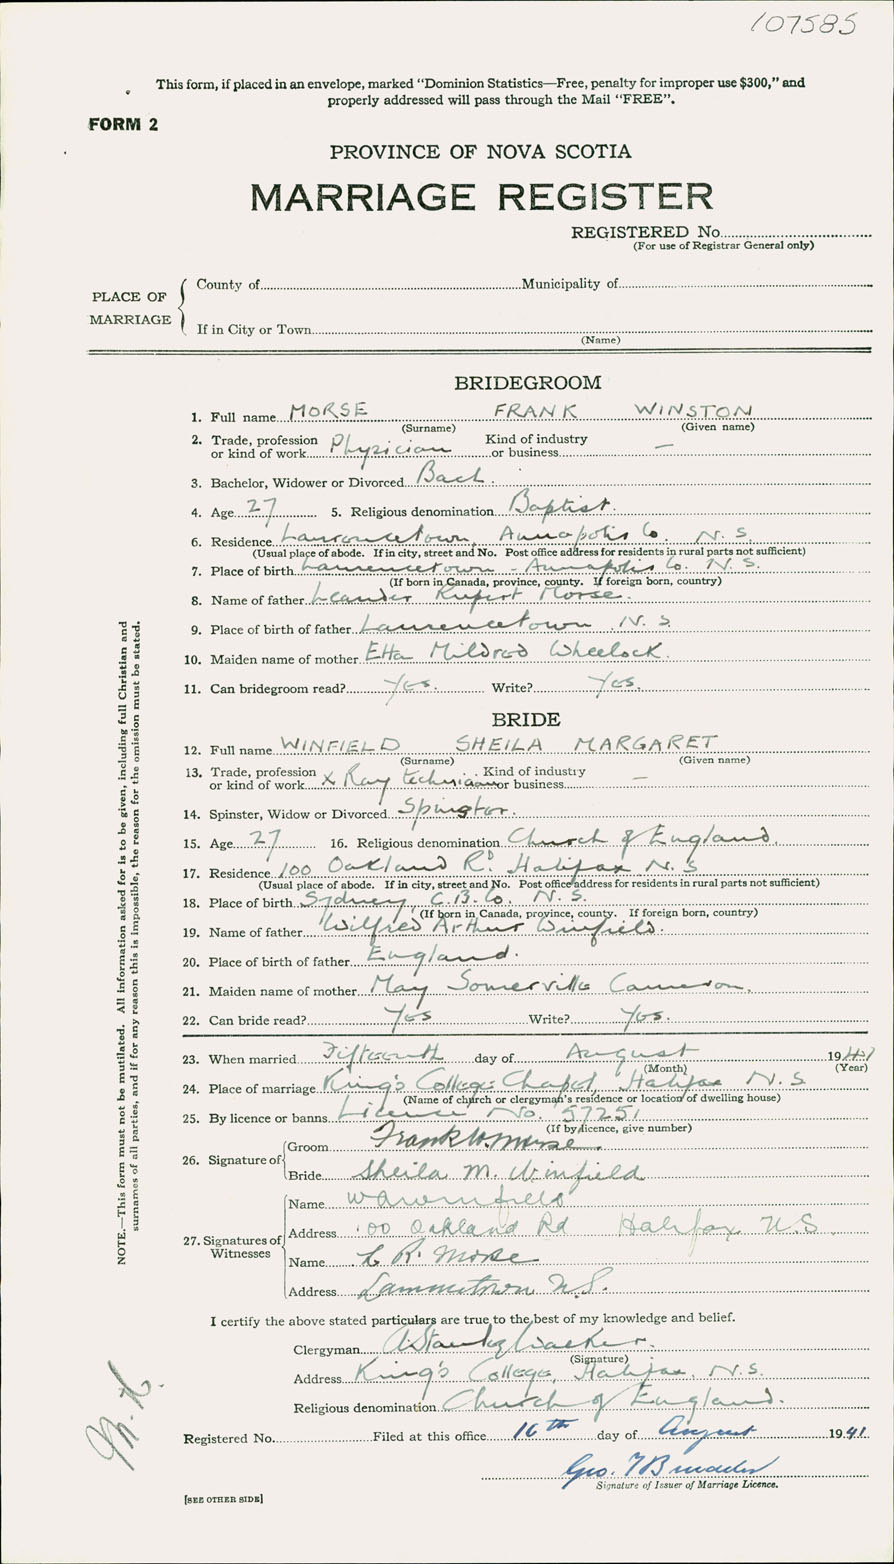 107585
This form, if placed in an envelope, marked "Dominion Statistics—Free, penalty for improper use $300," and
properly addressed will pass through the Mail "FREE".
FORM 2
PROVINCE OF NOVA SCOTIA
MARRIAGE REGISTER
REGISTERED No.
(For use of Registrar General only)
PLACE OF MARRIAGE
County of Municipality of
If in City or Town
(Name)
BRIDEGROOM
1. Full name MORSE FRANK WINSTON
(Surname) (Given name)
2. Trade, profession or kind of work Physician Kind of industry or business —
3. Bachelor, Widower or Divorced Bach.
4. Age 27 5. Religious denomination Baptist
6. Residence Lawrencetown, Annapolis Co. N.S.
(Usual place of abode. If in city, street and No. Post office address for residents in rural parts not sufficient)
7. Place of birth Lawrencetown - Annapolis Co. N.S.
(If born in Canada, province, county. If foreign born, country)
8. Name of father Leander Rupert Morse.
9. Place of birth of father Lawrencetown N.S.
10. Maiden name of mother Etta Mildred Wheelock.
11. Can bridegroom read? Yes. Write? Yes.
BRIDE
12. Full name WINFIELD SHEILA MARGARET
(Surname) (Given name)
13. Trade, profession or kind of work X Ray technician Kind of industry or business —
14. Spinster, Widow or Divorced Spinster.
15. Age 27 16. Religious denomination Church of England.
17. Residence 100 Oakland Rd. Halifax N.S.
(Usual place of abode. If in city, street and No. Post office address for residents in rural parts not sufficient)
18. Place of birth Sydney, C.B. Co. N.S.
(If born in Canada, province, county. If foreign born, country)
19. Name of father Wilfred Arthur Winfield.
20. Place of birth of father England.
21. Maiden name of mother May Somerville Cameron.
22. Can bride read? Yes Write? Yes.
23. When married Fifteenth day of August 1941
(Month) (Year)
24. Place of marriage King's College Chapel, Halifax N.S.
(Name of church or clergyman's residence or location of dwelling house)
25. By licence or banns Licence No. 57251
(If by licence, give number)
26. Signature of
Groom Frank W. Morse
Bride Sheila M. Winfield
27. Signatures of Witnesses
Name W A Winfield
Address 100 Oakland Rd Halifax N.S.
Name L R. Morse
Address Lawrencetown N.S.
I certify the above stated particulars are true to the best of my knowledge and belief.
Clergyman A Stanley Walker.
(Signature)
Address King's College, Halifax, N.S.
Religious denomination Church of England.
Registered No. Filed at this office 16th day of August 1941.
Geo.
Signature of Issuer of Marriage Licence.
[SEE OTHER SIDE]
NOTE.—This form must not be mutilated. All information asked for is to be given, including full Christian and
surnames of all parties, and if for any reason this is impossible, the reason for the omission must be stated.